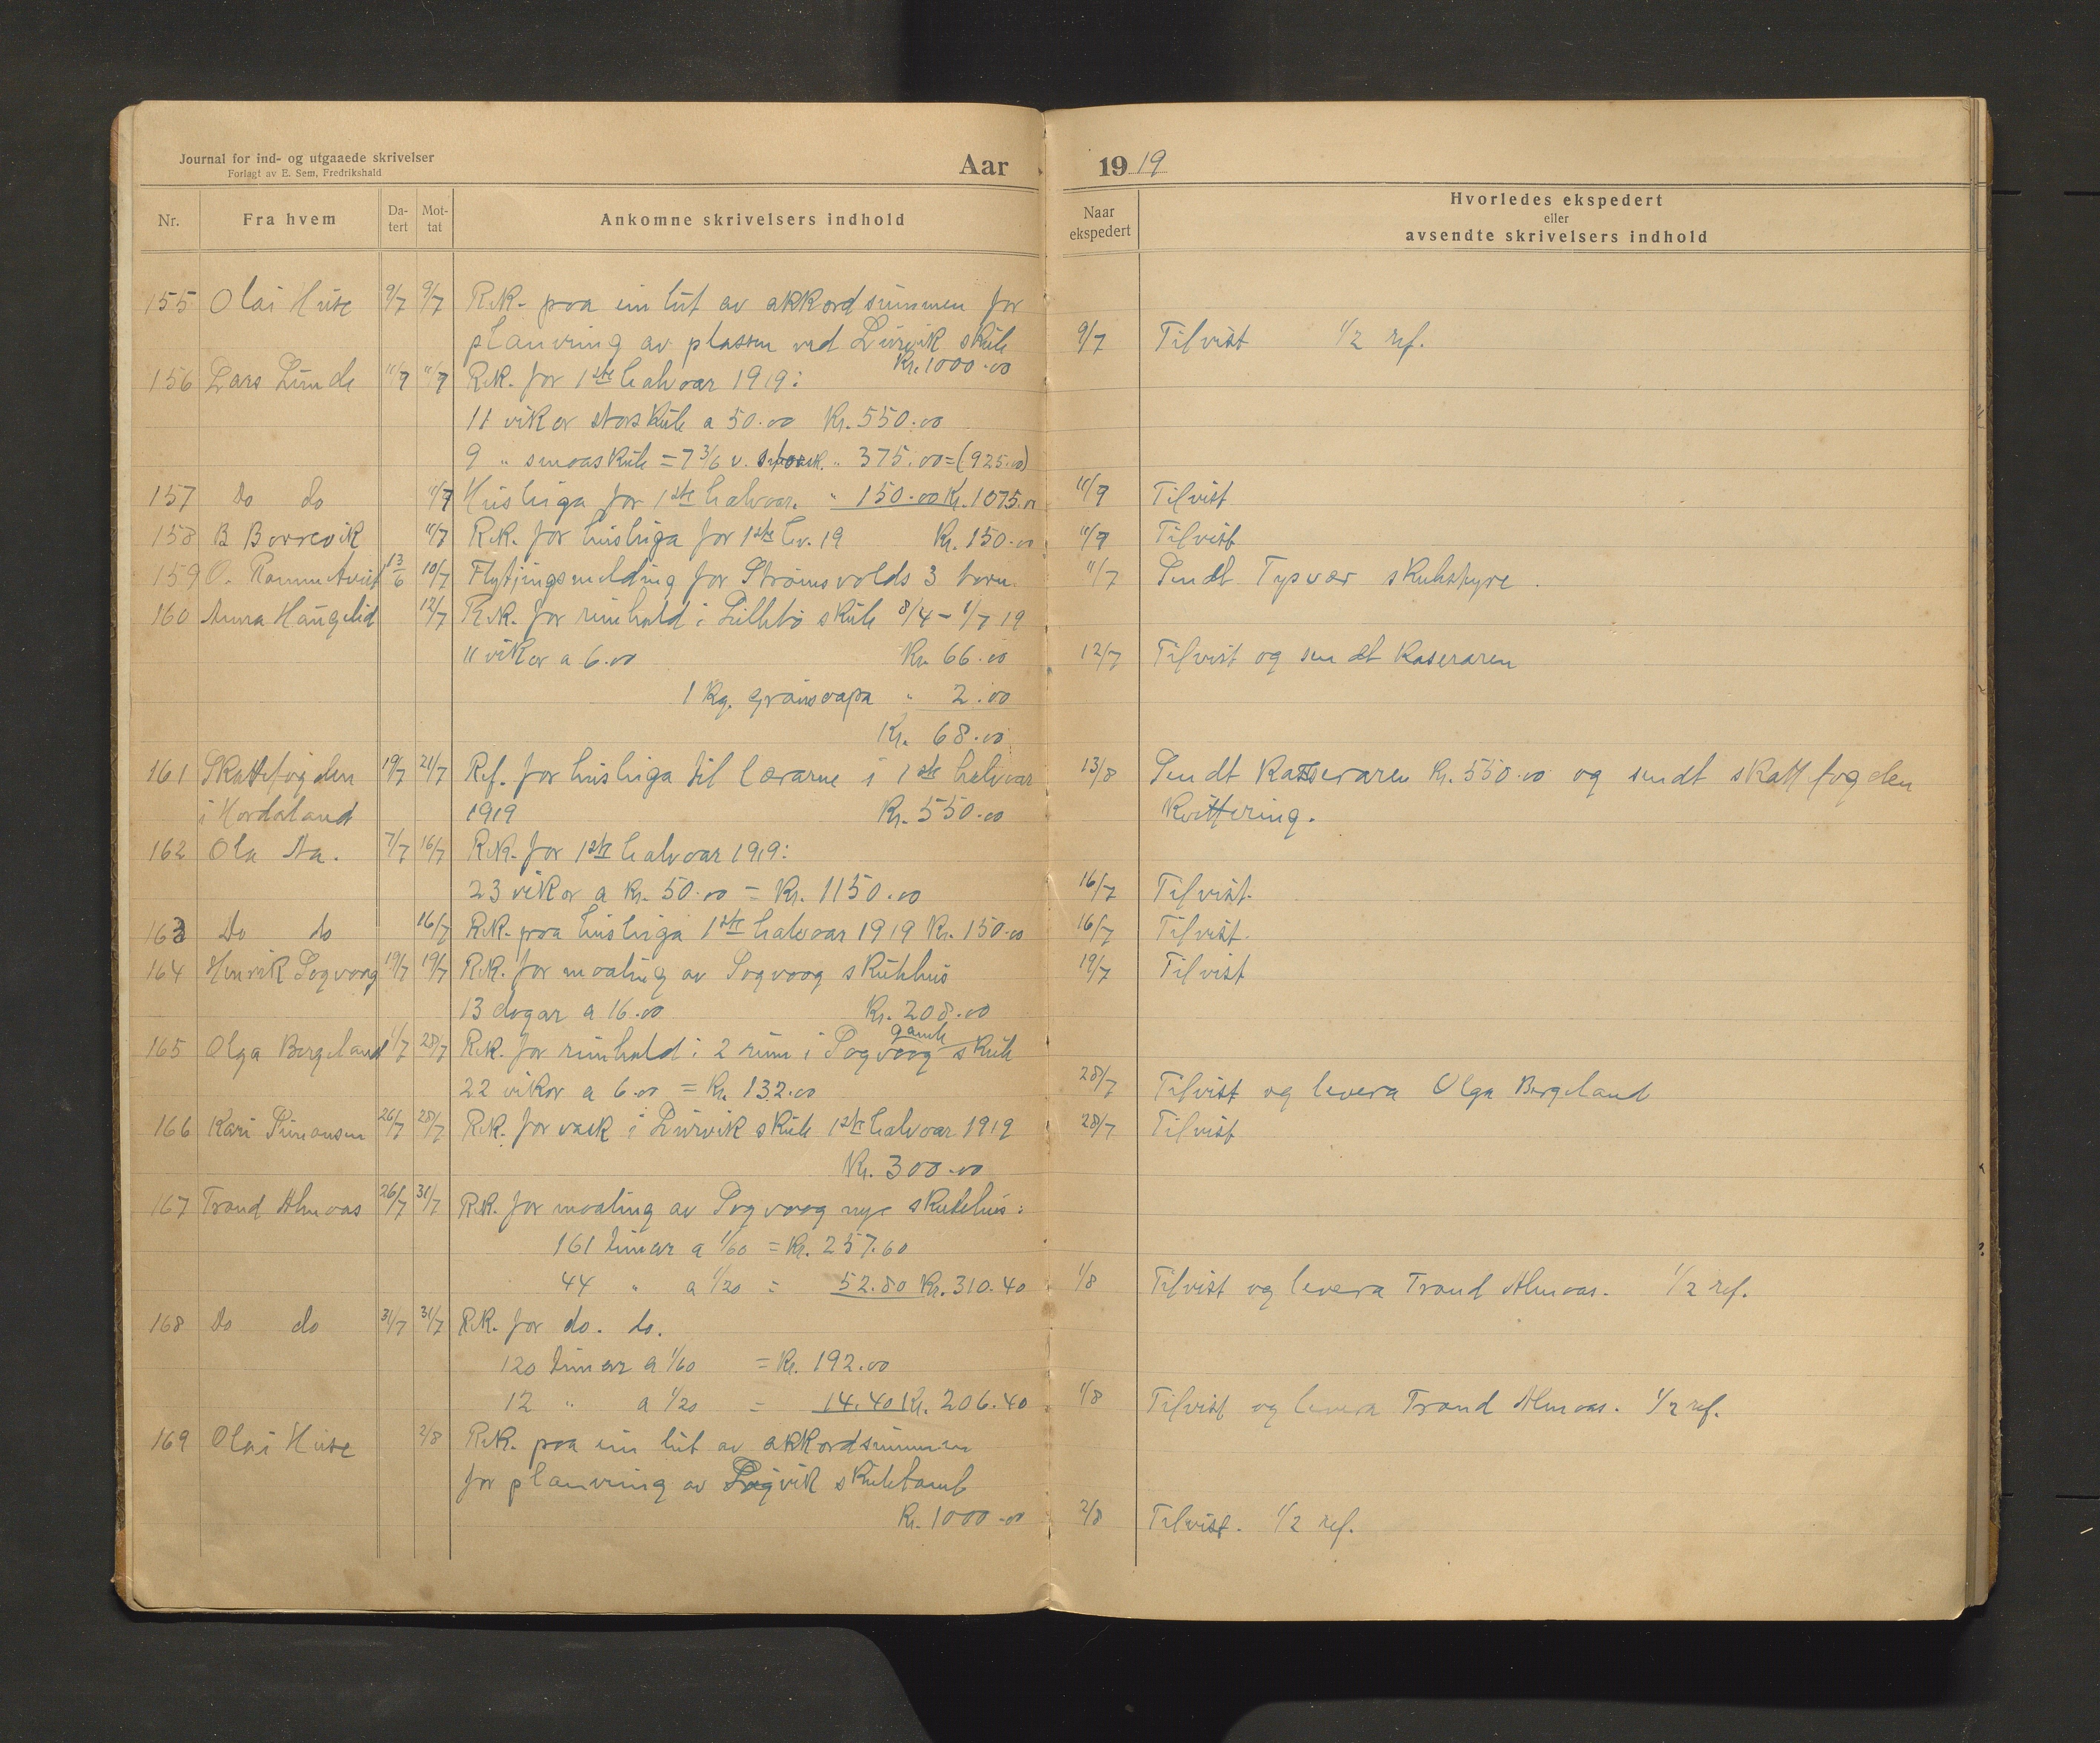 Journal for ind- og utgaaede skrivelser
Forlagt av E. Sem, Fredrikshald
Aar 1919
Nr. Fra hvem Datert Mottat Ankomne skrivelsers indhold
Naar ekspedert Hvorledes ekspedert
eller
avsendte skrivelsers indhold
155 Olai Huse 9/7 9/7 Rek. paa ein lut av akkordsummen for
planering av plassen ved Leirvik skule 9/7 Tilvist 1/2 ref.
Kr. 1000.00
156 Lars Lunde 11/7 11/7 Rek. for 1ste halvaar 1919:
11 vikor storskule a 50.00 Kr. 550.00
9 " smaaskule = 7 3/6 v. storsk. " 375.00 = (925.00)
157 Do do 11/7 Husleiga for 1ste halvaar. " 150.00 Kr. 1075.00 11/7 Tilvist
158 B Borrevik 11/7 Rek. for husleiga for 1ste hv. 19 Kr. 150.00 11/7 Tilvist
159 O. 13/6 10/7 Flytjingsmelding for Strømsvolds 3 born. 11/7 Sendt Tysvær skulestyre.
160 Anna Haugelid 12/7 Rek. for reinhald i Litlebø skule 8/4 - 1/7 19
11 vikor a 6.00 Kr. 66.00 12/7 Tilvist og sendt kaseraren
1 kg. grønsaapa " 2.00
Kr. 68.00
161 Skattefogden 19/7 21/7 Ref. for husleiga til lærarne i 1ste halvaar 13/8 Sendt kasseraren Kr. 550.00 og sendt skattfogden
i Hordaland 1919 Kr. 550.00 kvittering.
162 Ola Aa. 7/7 16/7 Rek. for 1ste halvaar 1919:
23 vikor a kr. 50.00 = Kr. 1150.00 16/7 Tilvist.
163 Do do 16/7 Rek. paa husleiga 1ste halvaar 1919 Kr. 150.00 16/7 Tilvist.
164 Henrik Sagvaag 19/7 19/7 Rek. for maaling av Sagvaag skulehus 19/7 Tilvist
13 dagar a 16.00 Kr. 208.00
165 Olga Bergeland 1/7 28/7 Rek. for reinhald i 2 rum i Sagvaag gamle skule
22 vikor a 6.00 = Kr. 132.00 28/7 Tilvist og levera Olga Bergeland
166 Kari Simonsen 26/7 28/7 Rek. for vask i Leirvik skule 1ste halvaar 1919 28/7 Tilvist
Kr. 300.00
167 Trond Almaas 26/7 31/7 Rek. for maaling av Sagvaag nye skulehus:
161 timar a 1/60 = Kr. 257.60
44 " a 1/20 = 52.80 Kr. 310.40 1/8 Tilvist og levera Trond Almaas. 1/2 ref.
168 Do do 31/7 31/7 Rek. for do. do.
120 timar a 1/60 = Kr. 192.00
12 " a 1/20 = 14.40 Kr. 206.40 1/8 Tilvist og levera Trond Almaas. 1/2 ref.
169 Olai Huse 2/8 Rek. paa ein lut av akkordsummen
for planering av skuletomt
Kr. 1000.00 2/8 Tilvist. 1/2 ref.